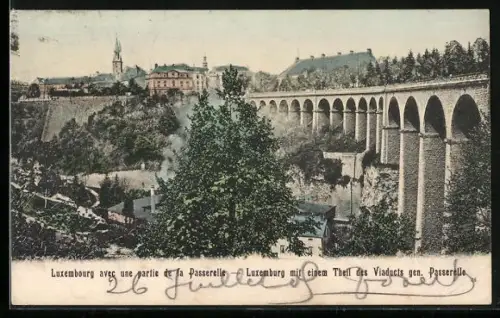 Luxembourg avec une partie de la Passerelle   Luxemburg mit einem Theil des Viaducts gen. Passerelle
26 Juillet